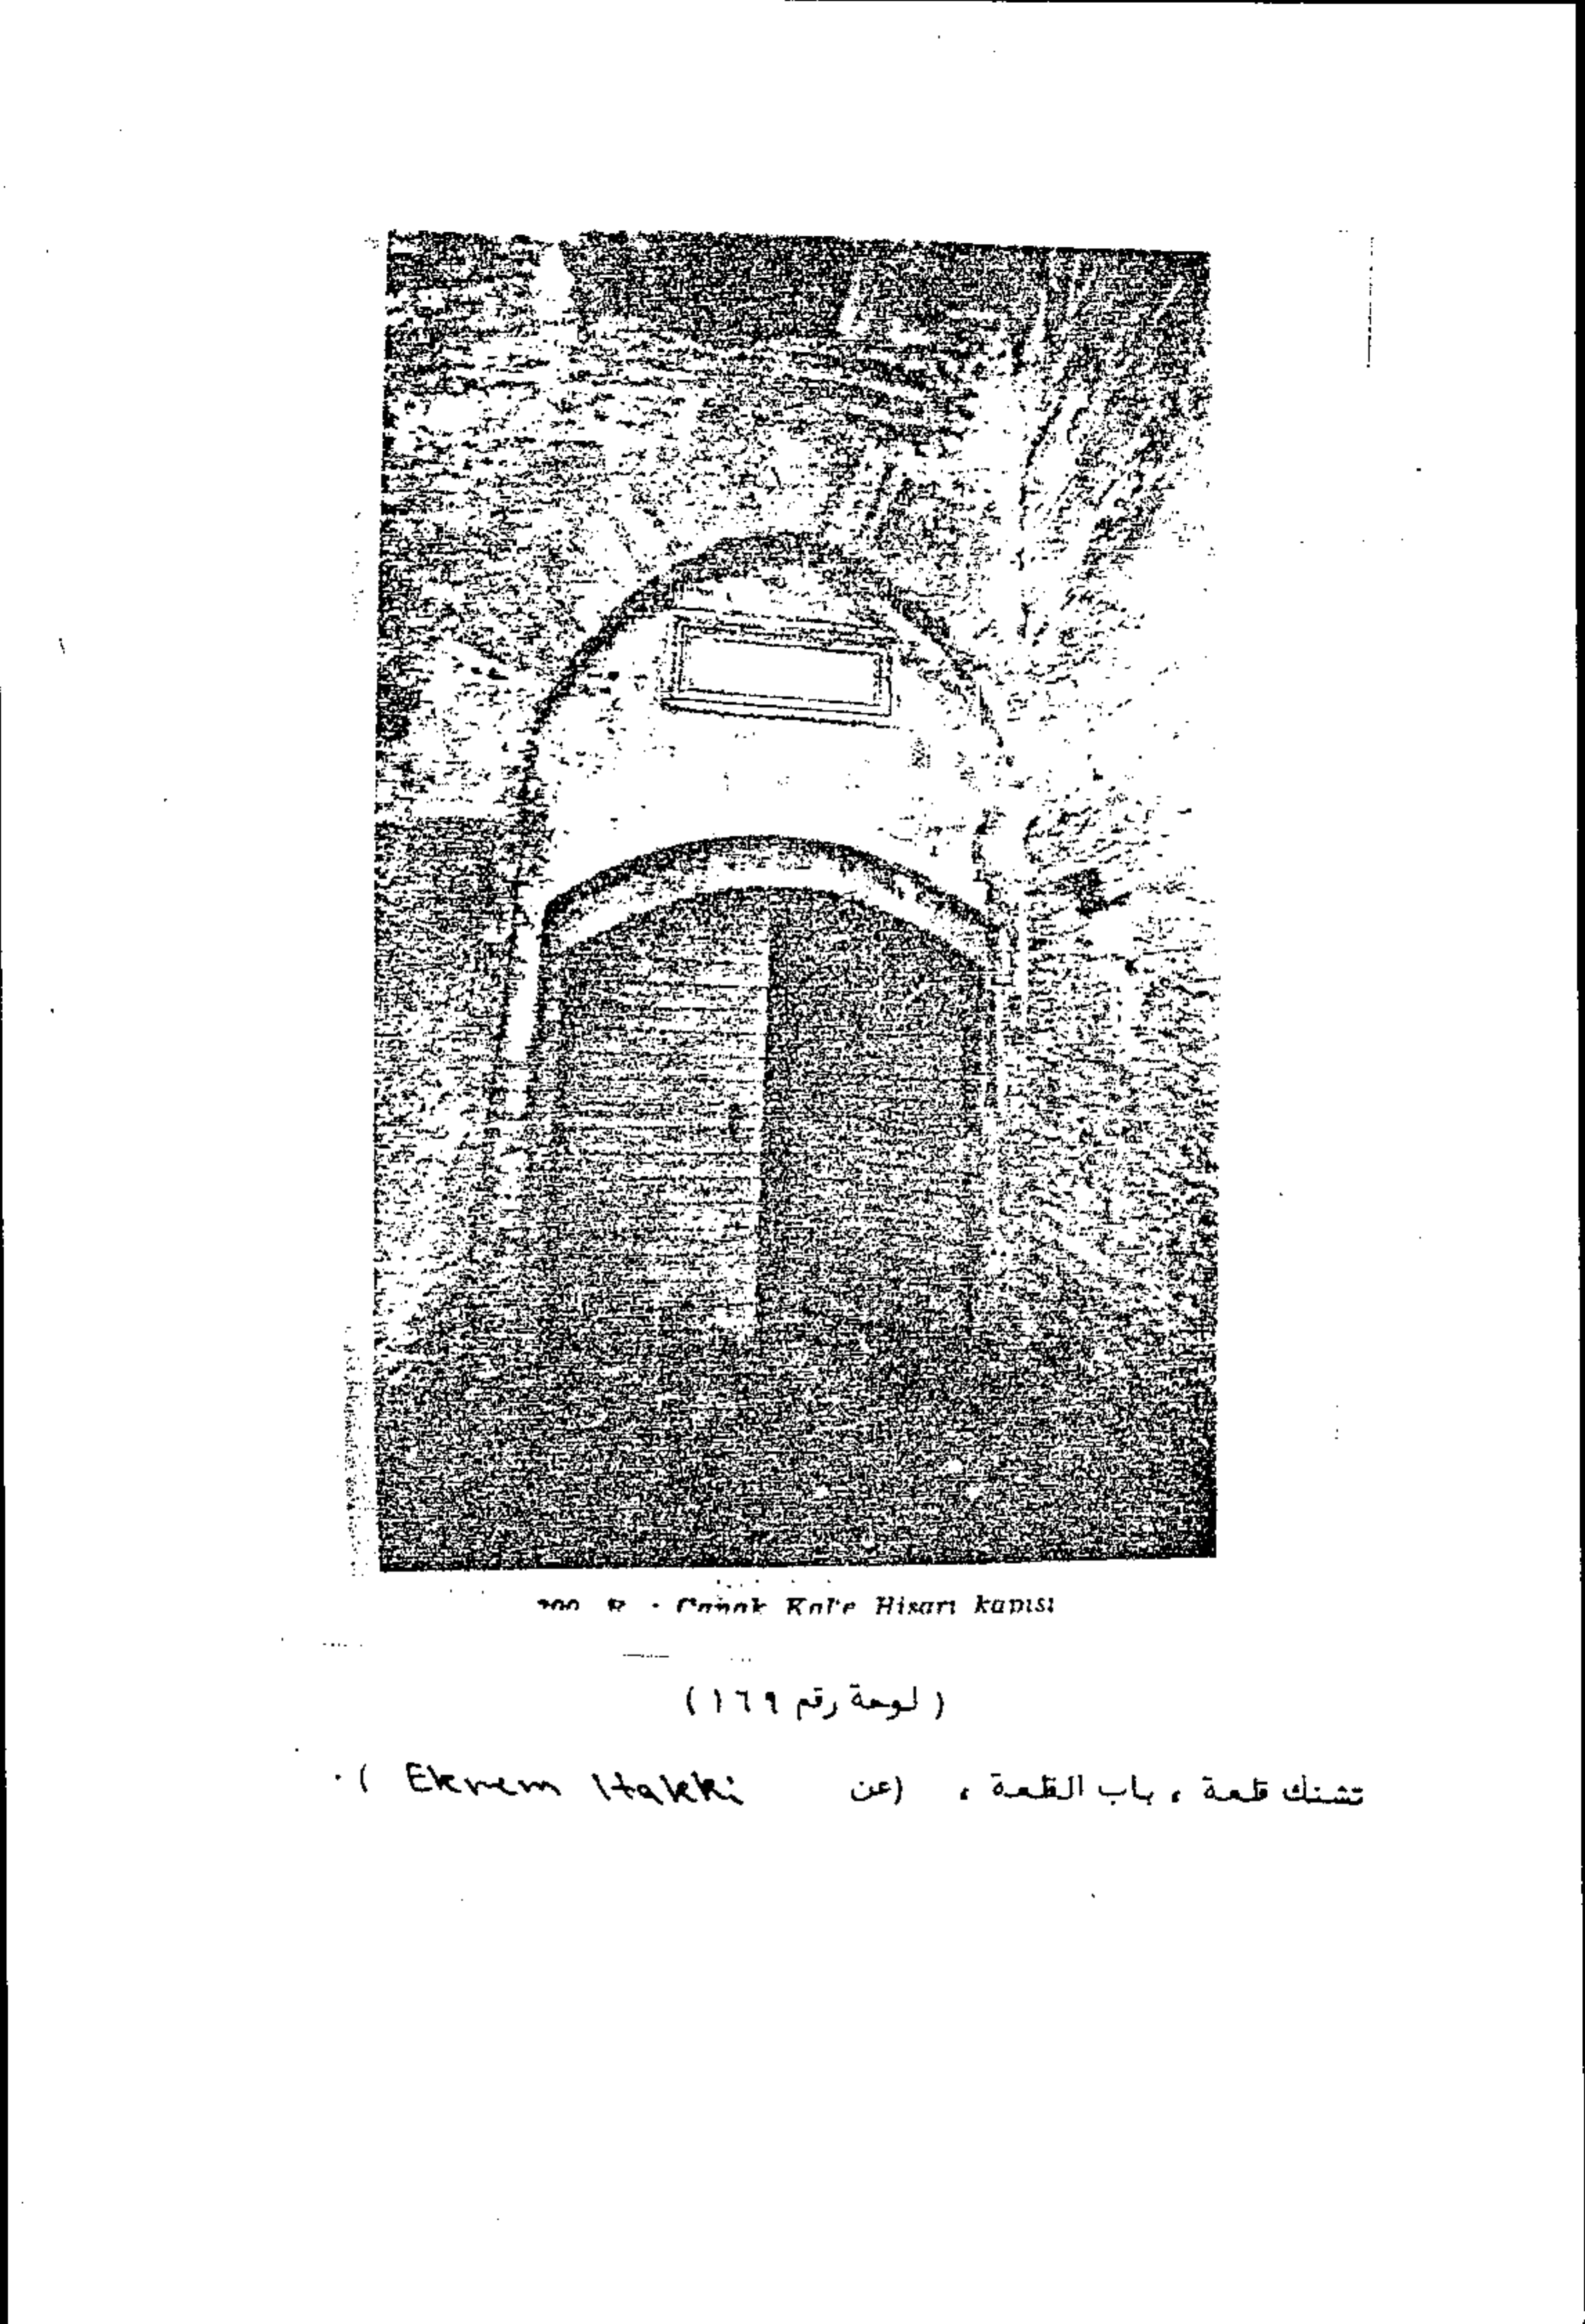 Kal'e Hisarı kapısı
( لوحة رقم ١٦٩ )
تشنك قلعة ، باب القلعة ، (عن Ekrem Hakki ) .